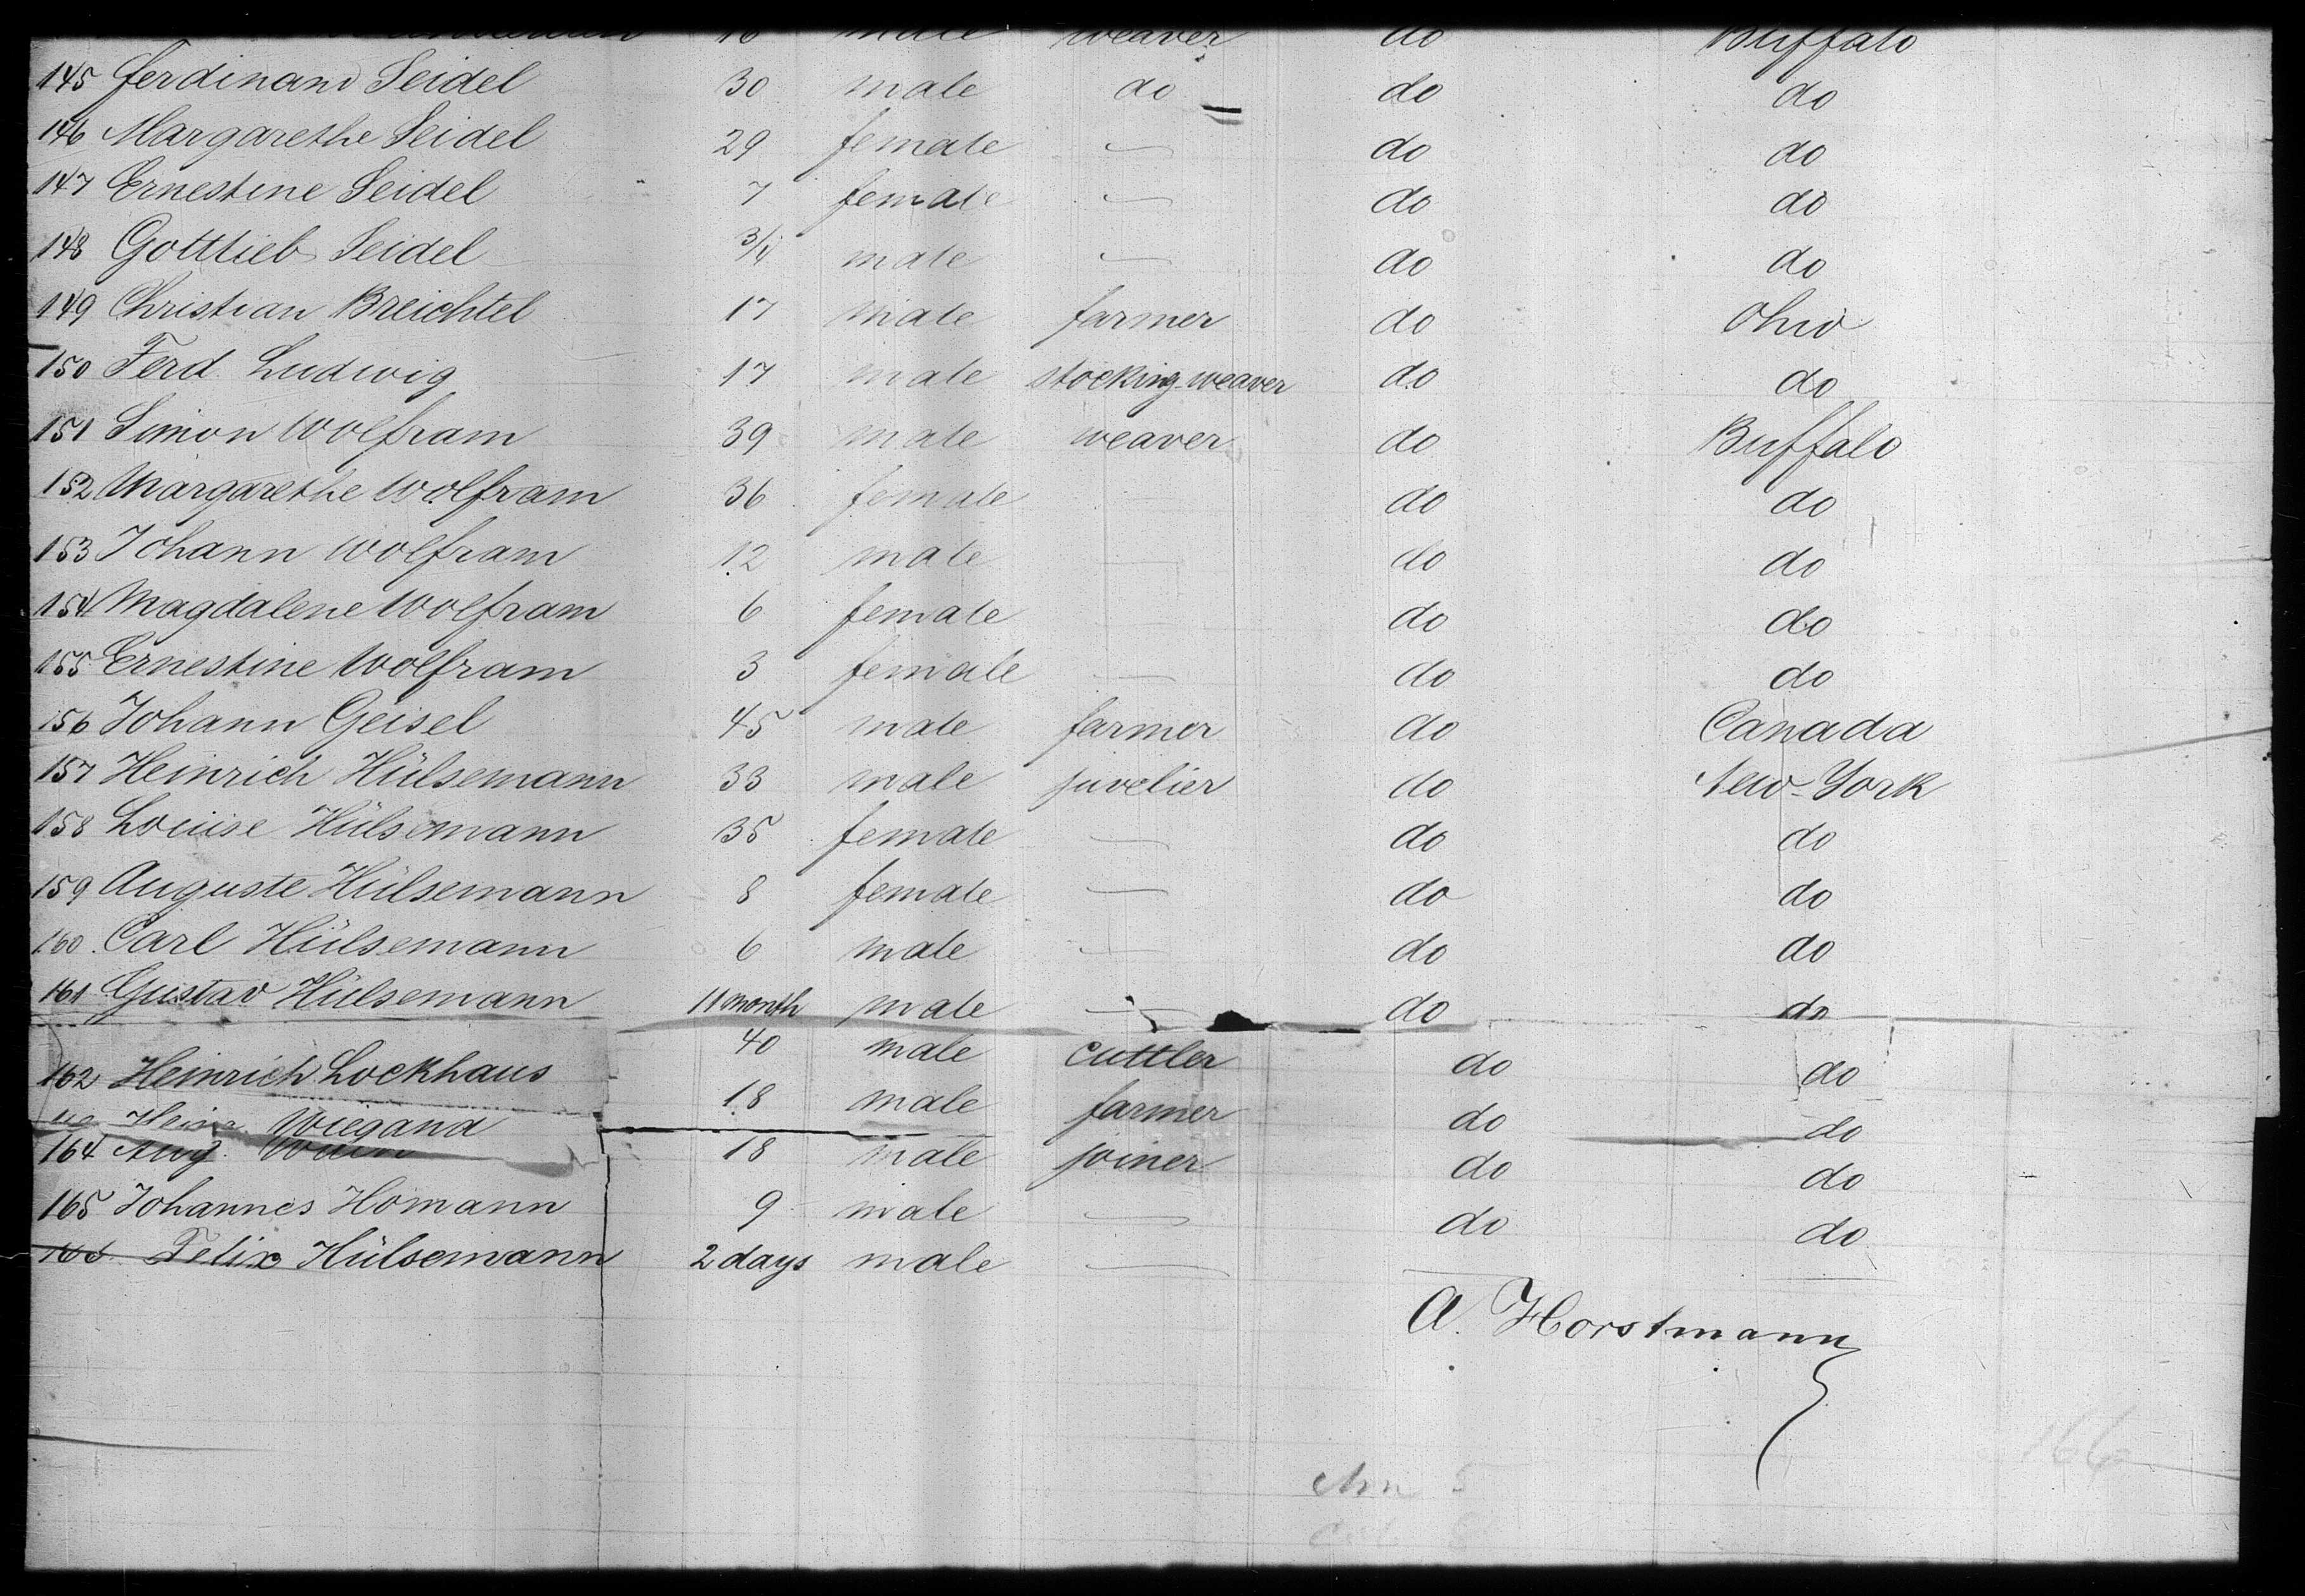 male weaver do Buffalo
145 Ferdinand Seidel 30 male do do do
146 Margarethe Seidel 29 female — do do
147 Ernestine Seidel 7 female — do do
148 Gottlieb Seidel 3/4 male — do do
149 Christian Breichtel 17 male farmer do Ohio
150 Ferd. Ludwig 17 male stocking-weaver do do
151 Simon Wolfram 39 male weaver do Buffalo
152 Margarethe Wolfram 36 female — do do
153 Johann Wolfram 12 male — do do
154 Magdalene Wolfram 6 female do do
155 Ernestine Wolfram 3 female — do do
156 Johann Geisel 45 male farmer do Canada
157 Heinrich Hülsemann 33 male juvelier do New-York
158 Louise Hülsemann 35 female — do do
159 Auguste Hülsemann 8 female — do do
160 Carl Hülsemann 6 male — do do
161 Gustav Hülsemann 11 month male — do do
162 Heinrich Lockhaus 40 male cuttler do do
Wiegand 18 male farmer do do
164 Aug. 18 male joiner do do
165 Johannes Homann 9 male — do do
166 Felix Hülsemann 2 days male —
A. Horstmann
166